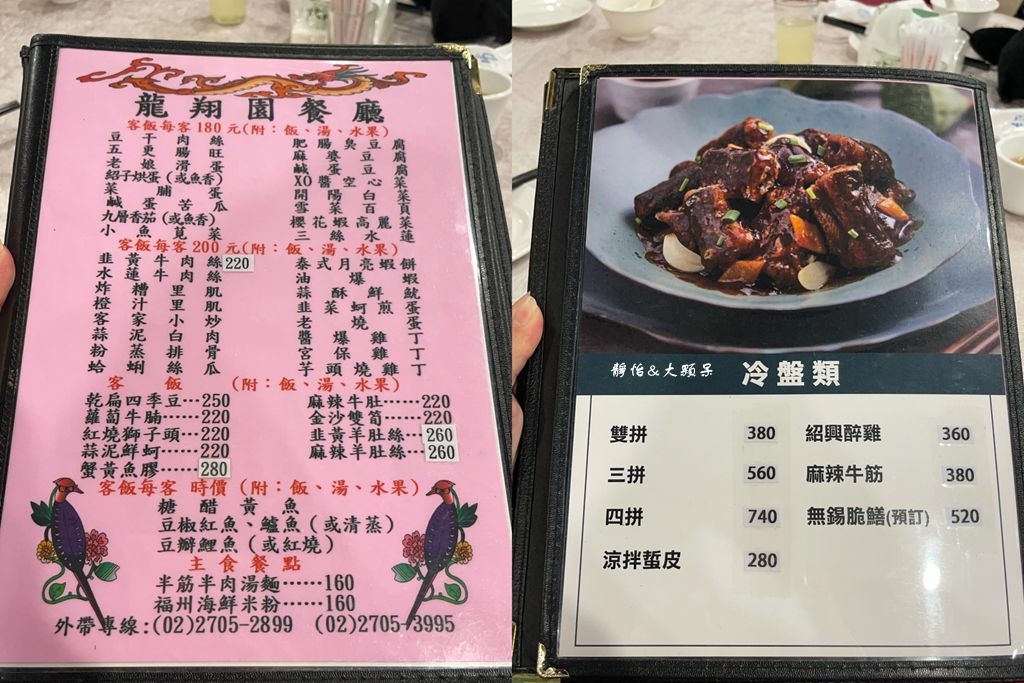 龍翔園餐廳
客飯每客180元(附：飯、湯、水果)
豆干肉絲
五更腸旺
老娘滑蛋
紹子烘蛋(或魚香)
菜脯蛋
鹹蛋苦瓜
九層香茄(或魚香)
小魚莧菜
肥腸臭豆腐
麻婆豆腐
鹹蛋豆腐
XO醬空心菜
開陽白菜
雪菜百頁
櫻花蝦高麗菜
三絲水蓮
客飯每客200元(附：飯、湯、水果)
韭黃牛肉絲220
水蓮牛肉絲
炸糟里肌
橙汁里肌
客家小炒
蒜泥白肉
粉蒸排骨
蛤蜊絲瓜
泰式月亮蝦餅
油爆蝦
蒜酥鮮魷
韭菜蚵煎蛋
老燒蛋
醬爆雞丁
宮保雞丁
芋頭燒雞丁
客飯(附：飯、湯、水果)
乾扁四季豆…250
蘿蔔牛腩……220
紅燒獅子頭…220
蒜泥鮮蚵……220
蟹黃魚膠……280
麻辣牛肚……220
金沙雙筍……220
韭黃羊肚絲…260
麻辣羊肚絲…260
客飯每客 時價(附：飯、湯、水果)
糖醋黃魚
豆椒紅魚、鱸魚(或清蒸)
豆瓣鯉魚(或紅燒)
主食餐點
半筋半肉湯麵……160
福州海鮮米粉……160
外帶專線:(02)2705-2899 (02)2705-3995
靜怡&大顆呆
冷盤類
雙拼 380
三拼 560
四拼 740
涼拌蜇皮 280
紹興醉雞 360
麻辣牛筋 380
無錫脆鱔(預訂) 520